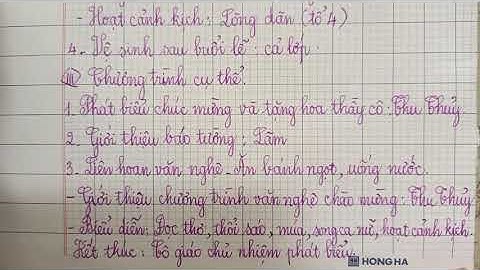 - Hoạt cảnh kịch: Lòng dân (tổ 4)
4. Vệ sinh sau buổi lễ: cả lớp.
III Chương trình cụ thể.
1. Phát biểu chúc mừng và tặng hoa thầy cô: Thu Thuỷ.
2. Giới thiệu báo tường: Tâm
3. Liên hoan văn nghệ - Ăn bánh ngọt, uống nước.
- Giới thiệu chương trình văn nghệ chào mừng: Thu Thuỷ
- Biểu diễn: Đọc thơ, thổi sáo, múa, song ca nữ, hoạt cảnh kịch.
Kết thúc: Cô giáo chủ nhiệm phát biểu.
HONG HA